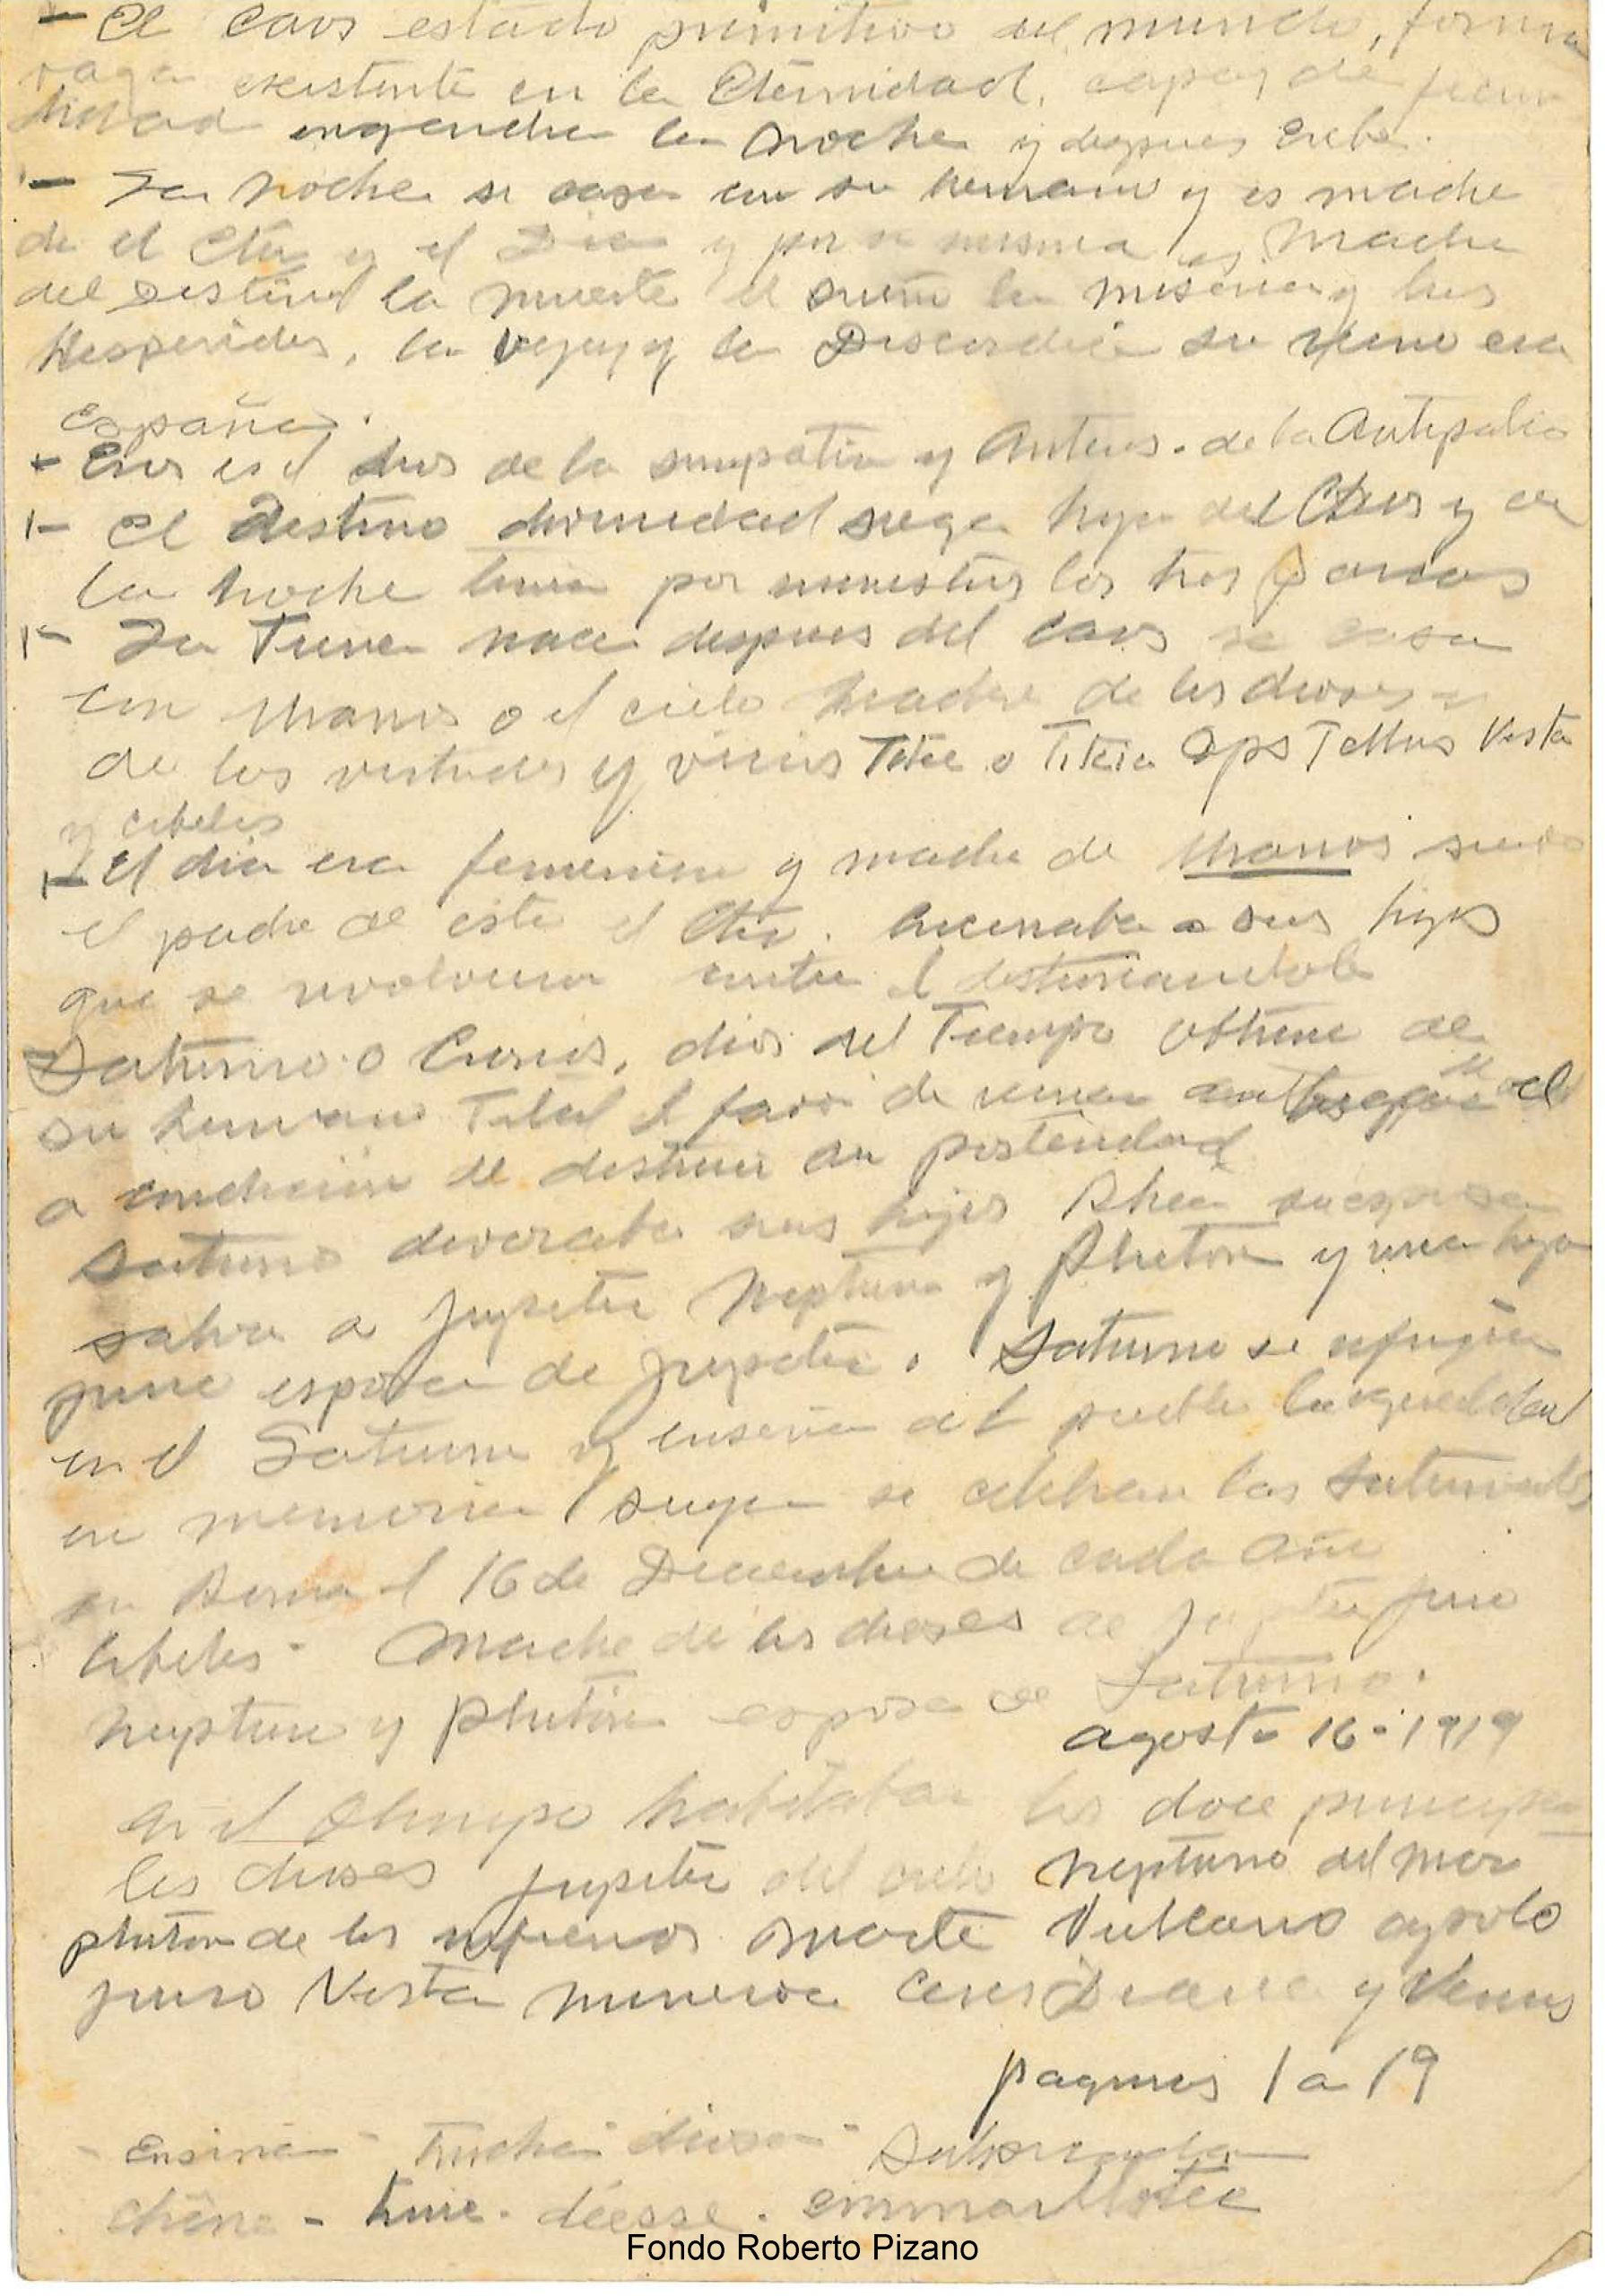 - El caos estado primitivo del mundo, forma
vaga existente en la Eternidad, capaz de fecun
didad engendra la noche y despues Erebo.
- La noche se casa con su hermano y es madre
de el Eter y el Dia y por si misma es madre
del Destino la muerte el sueño la miseria y las
Hesperides, la vejez y la Discordia su reino era
España.
- Eros es el dios de la simpatia y Anteros. de la Antipatia
- El Destino divinidad ciega hijo del Caos y de
la noche tenia por ministros las tres Parcas
- La Tierra nace despues del caos se casa
con Uranos o el cielo madre de los dioses
de las virtudes y vicios Titea Ops Tellus Vesta
y cibeles
- El dia era femenino y madre de Uranos siendo
el padre de este el Eter. Encerraba a sus hijos
que se revolvieron contra el
Saturno o Cronos, dios del Tiempo obtiene de
su hermano Titan el favor de reinar
a condicion de destruir su posteridad
Saturno devoraba sus hijos Rhea su esposa
salva a Jupiter Neptuno y Pluton y una hija
juno esposa de Jupiter. Saturno se refugia
en el y enseña al pueblo la igualdad
en memoria suya se celebran las Saturnales
en Roma el 16 de Diciembre de cada año
Cibeles - Madre de los dioses de Jupiter juno
Neptuno y Pluton esposa de Saturno.
agosto 16-1919
En el Olimpo habitaban los doce principa
les dioses Jupiter del cielo Neptuno del mar
pluton de los infiernos Marte Vulcano apolo
juno Vesta minerva Ceres Diana y Venus
paginas 1 a 19
- Encina - diosa -
chêne - déesse. emmaillotée
Fondo Roberto Pizano